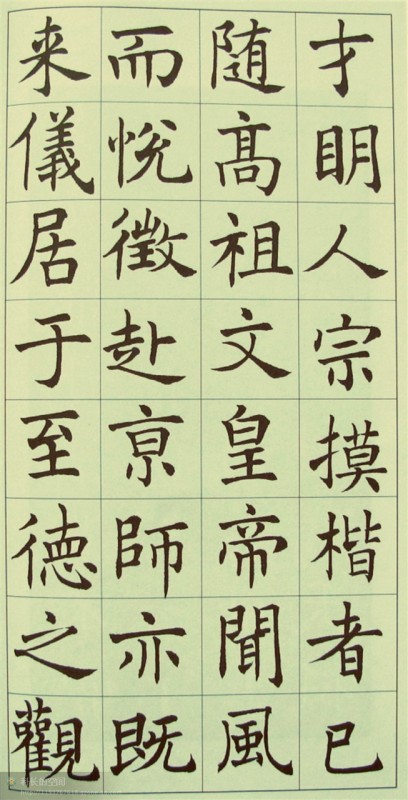 才明人宗摸楷者已
随高祖文皇帝聞風
而悅徴赴京師亦既
来儀居于至德之觀